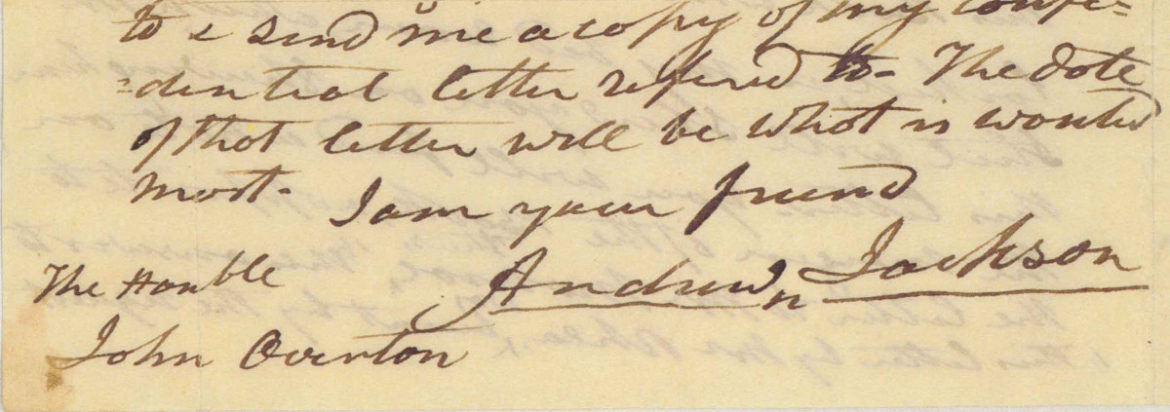 to & send me a copy of my confi=
=dential letter refered to- The date
of that letter will be what is wanted
most- I am your friend
Andrew Jackson
The Honble
John Overton